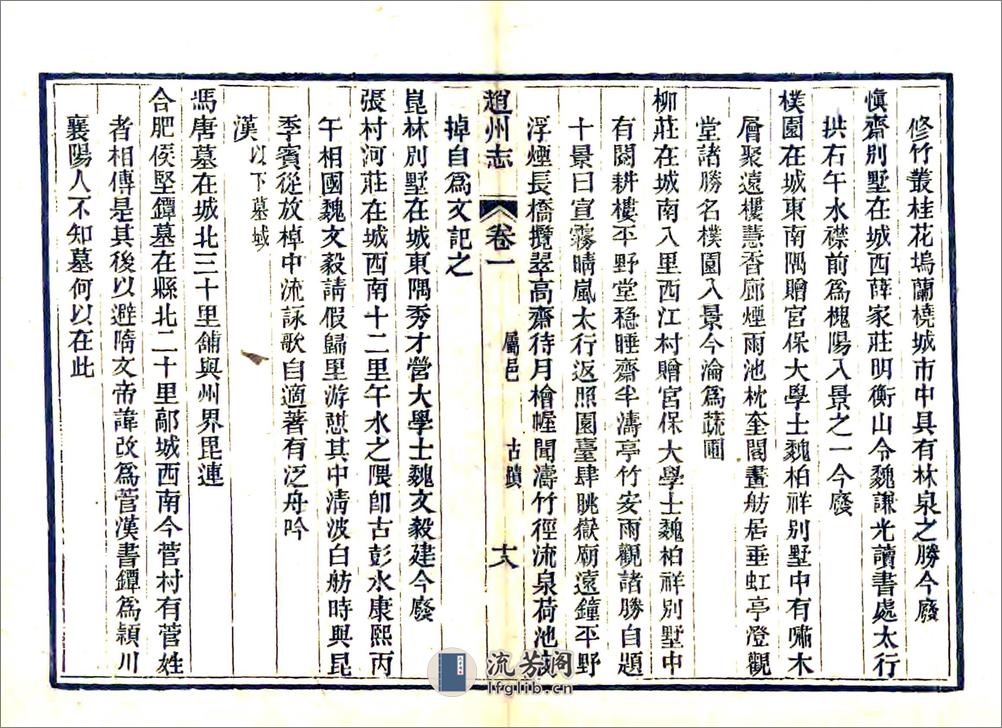 修竹叢桂花塢蘭橈城市中具有林泉之勝今廢
愼齋別墅在城西薛家莊明衡山令魏謙光讀書處太行
拱右午水襟前爲槐陽八景之一今廢
樸園在城東南隅贈宮保大學士魏柏祥別墅中有嘯木
層聚遠樓慧香廊煙雨池枕奎閣畫舫居垂虹亭澄觀
堂諸勝名樸園八景今淪爲蔬圃
柳莊在城南八里西江村贈宮保大學士魏柏祥別墅中
有閱耕樓平野堂穏睡齋半濤亭竹安雨觀諸勝自題
十景曰宣霧晴嵐太行返照園臺肆眺嶽廟遠鐘平野
浮煙長橋攬翠高齋待月檜幄聞濤竹徑流泉荷池
趙州志 卷一 屬邑 古蹟 十八
掉自爲文記之
崑林別墅在城東隅秀才營大學士魏文毅建今廢
張村河莊在城西南十二里午水之隈卽古彭水康熙丙
午相國魏文毅請假歸里游憩其中淸波白舫時與昆
季賓從放棹中流詠歌自適著有泛舟吟
漢以下墓域
馮唐墓在城北三十里舖與州界毘連
合肥侯堅鐔墓在縣北二十里鄗城西南今菅村有菅姓
者相傳是其後以避隋文帝諱改爲菅漢書鐔爲潁川
襄陽人不知墓何以在此
流芳阁
lfglib.cn